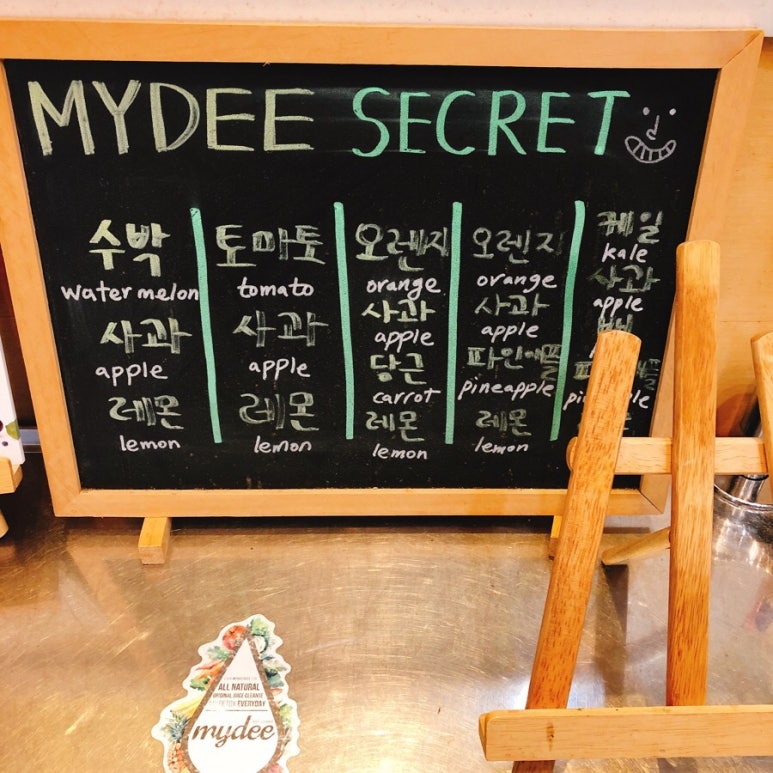 MYDEE SECRET
수박
watermelon
사과
apple
레몬
lemon
토마토
tomato
사과
apple
레몬
lemon
오렌지
orange
사과
apple
당근
carrot
레몬
lemon
오렌지
orange
사과
apple
파인애플
pineapple
레몬
lemon
케일
kale
사과
apple
ALL NATURAL
EVERYDAY
mydee